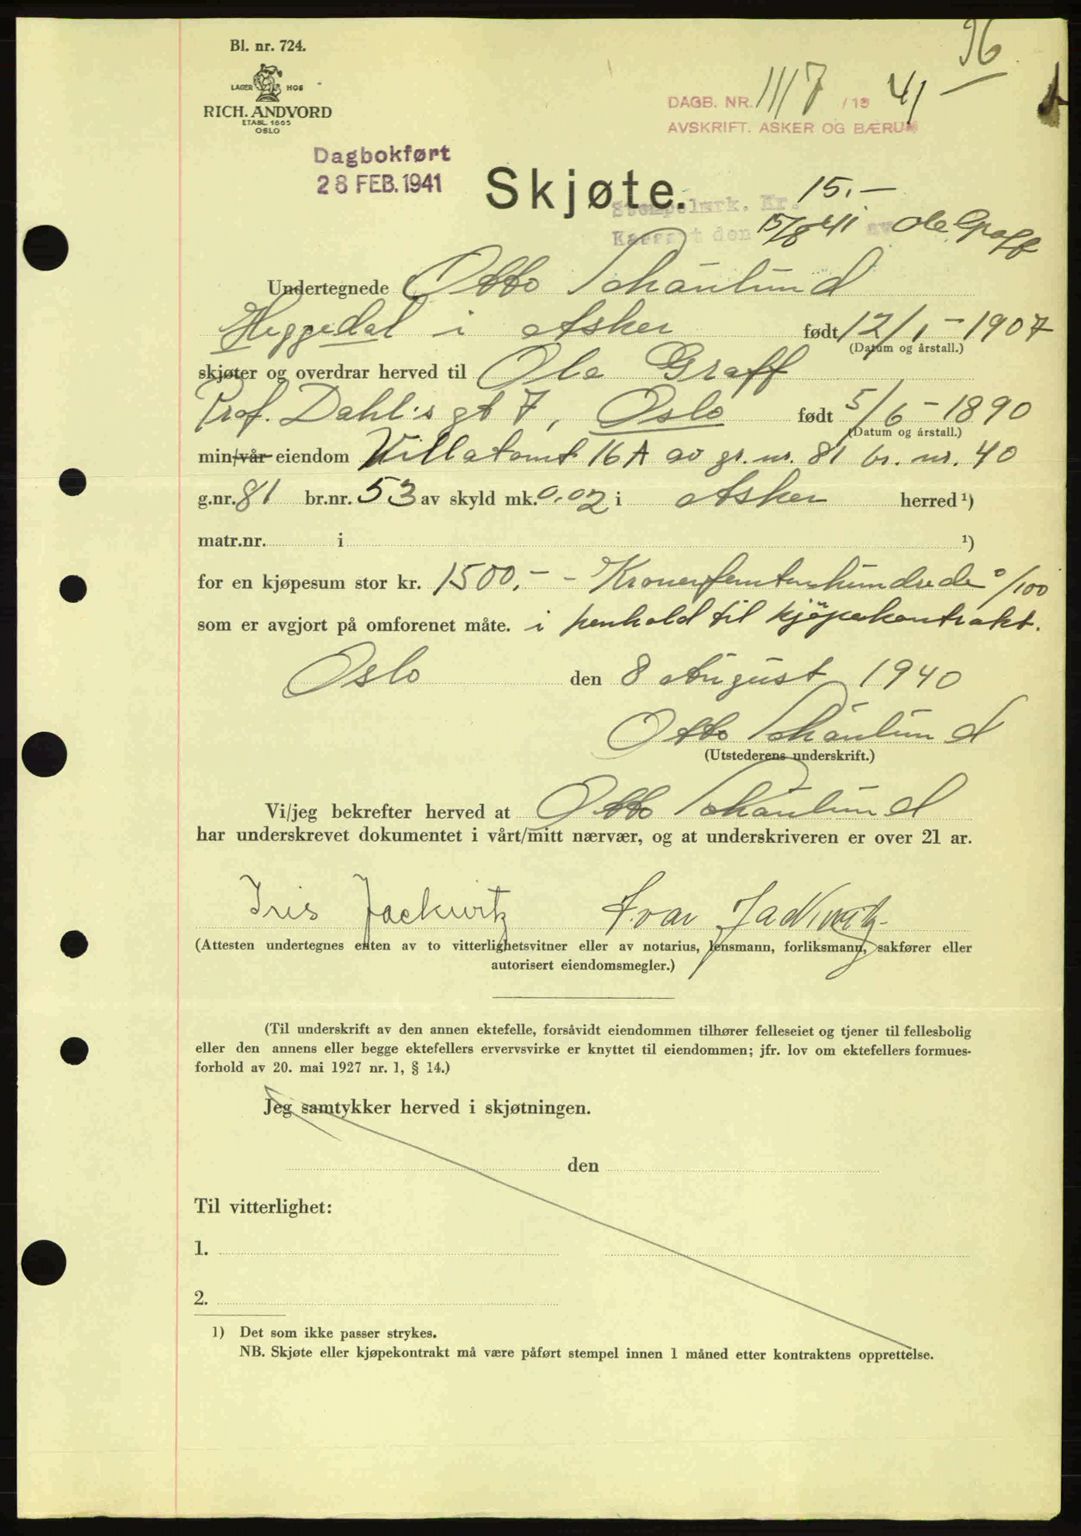 96
Bl. nr. 724.
LAGER HOS
RICH. ANDVORD
ETABL. 1865
OSLO
DAGB. NR. 1117 / 19 41
AVSKRIFT. ASKER OG BÆRUM
Dagbokført
28 FEB. 1941
Skjøte.
Stempelmrk. Kr. 15.-
Kassert den 15/8 41 av Ole Graff
Undertegnede Otto Schäulund
Heggedal i Asker født 12/1-1907
(Datum og årstall.)
skjøter og overdrar herved til Ole Graff
Prof. Dahl:s gt 7, Oslo født 5/6-1890
(Datum og årstall.)
min/vår eiendom Villatomt 16A av gr. nr. 81 br. nr. 40
g.nr. 81 br.nr. 53 av skyld mk. 0.02 i Asker herred ¹)
matr.nr. i ¹)
for en kjøpesum stor kr. 1500.- - Kronerfemtenhundrede 0/100
som er avgjort på omforenet måte. i henhold til kjöpekontrakt.
Oslo den 8 August 1940
Otto Schäulund
(Utstederens underskrift.)
Vi/jeg bekrefter herved at Otto Schäulund
har underskrevet dokumentet i vårt/mitt nærvær, og at underskriveren er over 21 år.
Iris Jackwitz Ivar Jackwitz
(Attesten undertegnes enten av to vitterlighetsvitner eller av notarius, lensmann, forliksmann, sakfører eller
autorisert eiendomsmegler.)
(Til underskrift av den annen ektefelle, forsåvidt eiendommen tilhører felleseiet og tjener til fellesbolig
eller den annens eller begge ektefellers ervervsvirke er knyttet til eiendommen; jfr. lov om ektefellers formues-
forhold av 20. mai 1927 nr. 1, § 14.)
Jeg samtykker herved i skjøtningen.
den
Til vitterlighet:
1.
2.
1) Det som ikke passer strykes.
NB. Skjøte eller kjøpekontrakt må være påført stempel innen 1 måned etter kontraktens opprettelse.